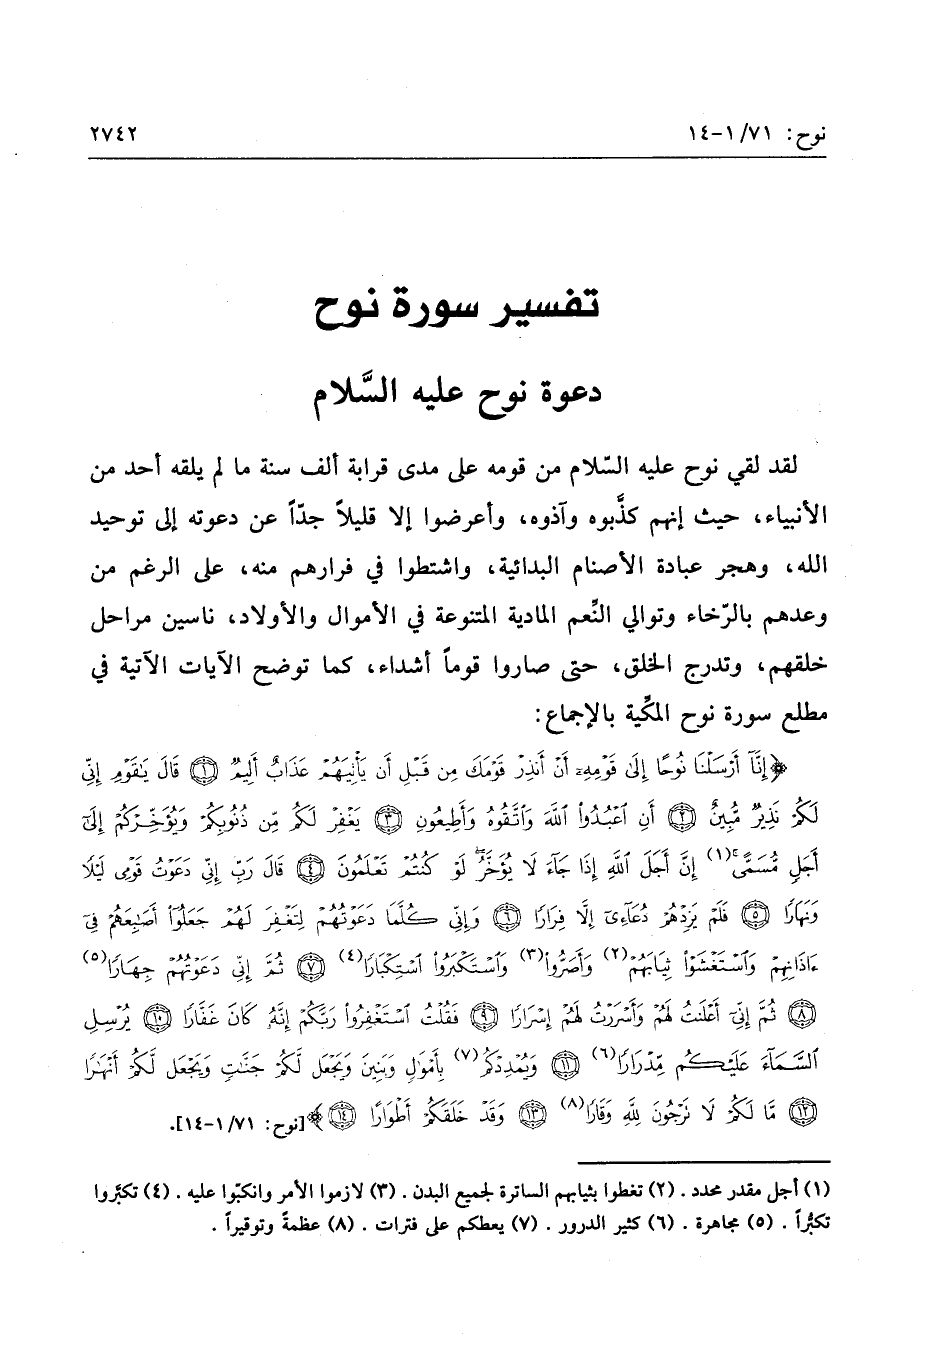 نوح: ٧١/ ١-١٤ ٢٧٤٢
تفسير سورة نوح
دعوة نوح عليه السَّلام
لقد لقي نوح عليه السّلام من قومه على مدى قرابة ألف سنة ما لم يلقه أحد من
الأنبياء، حيث إنهم كذَّبوه وآذوه، وأعرضوا إلا قليلاً جدّاً عن دعوته إلى توحيد
الله، وهجر عبادة الأصنام البدائية، واشتطوا في فرارهم منه، على الرغم من
وعدهم بالرّخاء وتوالي النِّعم المادية المتنوعة في الأموال والأولاد، ناسين مراحل
خلقهم، وتدرج الخلق، حتى صاروا قوماً أشداء، كما توضح الآيات الآتية في
مطلع سورة نوح المكِّية بالإجماع:
﴿إِنَّآ أَرْسَلْنَا نُوحًا إِلَىٰ قَوْمِهِۦٓ أَنْ أَنذِرْ قَوْمَكَ مِن قَبْلِ أَن يَأْتِيَهُمْ عَذَابٌ أَلِيمٌ ١ قَالَ يَٰقَوْمِ إِنِّى
لَكُمْ نَذِيرٌ مُّبِينٌ ٢ أَنِ ٱعْبُدُوا۟ ٱللَّهَ وَٱتَّقُوهُ وَأَطِيعُونِ ٣ يَغْفِرْ لَكُم مِّن ذُنُوبِكُمْ وَيُؤَخِّرْكُمْ إِلَىٰٓ
أَجَلٍ مُّسَمًّىۚ(١) إِنَّ أَجَلَ ٱللَّهِ إِذَا جَآءَ لَا يُؤَخَّرُۖ لَوْ كُنتُمْ تَعْلَمُونَ ٤ قَالَ رَبِّ إِنِّى دَعَوْتُ قَوْمِى لَيْلًا
وَنَهَارًا ٥ فَلَمْ يَزِدْهُمْ دُعَآءِىٓ إِلَّا فِرَارًا ٦ وَإِنِّى كُلَّمَا دَعَوْتُهُمْ لِتَغْفِرَ لَهُمْ جَعَلُوٓا۟ أَصَٰبِعَهُمْ فِىٓ
ءَاذَانِهِمْ وَٱسْتَغْشَوْا۟ ثِيَابَهُمْ(٢) وَأَصَرُّوا۟(٣) وَٱسْتَكْبَرُوا۟ ٱسْتِكْبَارًا(٤) ٧ ثُمَّ إِنِّى دَعَوْتُهُمْ جِهَارًا(٥)
٨ ثُمَّ إِنِّىٓ أَعْلَنتُ لَهُمْ وَأَسْرَرْتُ لَهُمْ إِسْرَارًا ٩ فَقُلْتُ ٱسْتَغْفِرُوا۟ رَبَّكُمْ إِنَّهُۥ كَانَ غَفَّارًا ١٠ يُرْسِلِ
ٱلسَّمَآءَ عَلَيْكُم مِّدْرَارًا(٦) ١١ وَيُمْدِدْكُم(٧) بِأَمْوَٰلٍ وَبَنِينَ وَيَجْعَل لَّكُمْ جَنَّٰتٍ وَيَجْعَل لَّكُمْ أَنْهَٰرًا
١٢ مَّا لَكُمْ لَا تَرْجُونَ لِلَّهِ وَقَارًا(٨) ١٣ وَقَدْ خَلَقَكُمْ أَطْوَارًا ١٤﴾ [نوح: ٧١/ ١-١٤].
(١) أجل مقدر محدد . (٢) تغطوا بثيابهم الساترة لجميع البدن . (٣) لازموا الأمر وانكبّوا عليه . (٤) تكبَّروا
تكبُّراً . (٥) مجاهرة . (٦) كثير الدرور . (٧) يعطكم على فترات . (٨) عظمةً وتوقيراً .